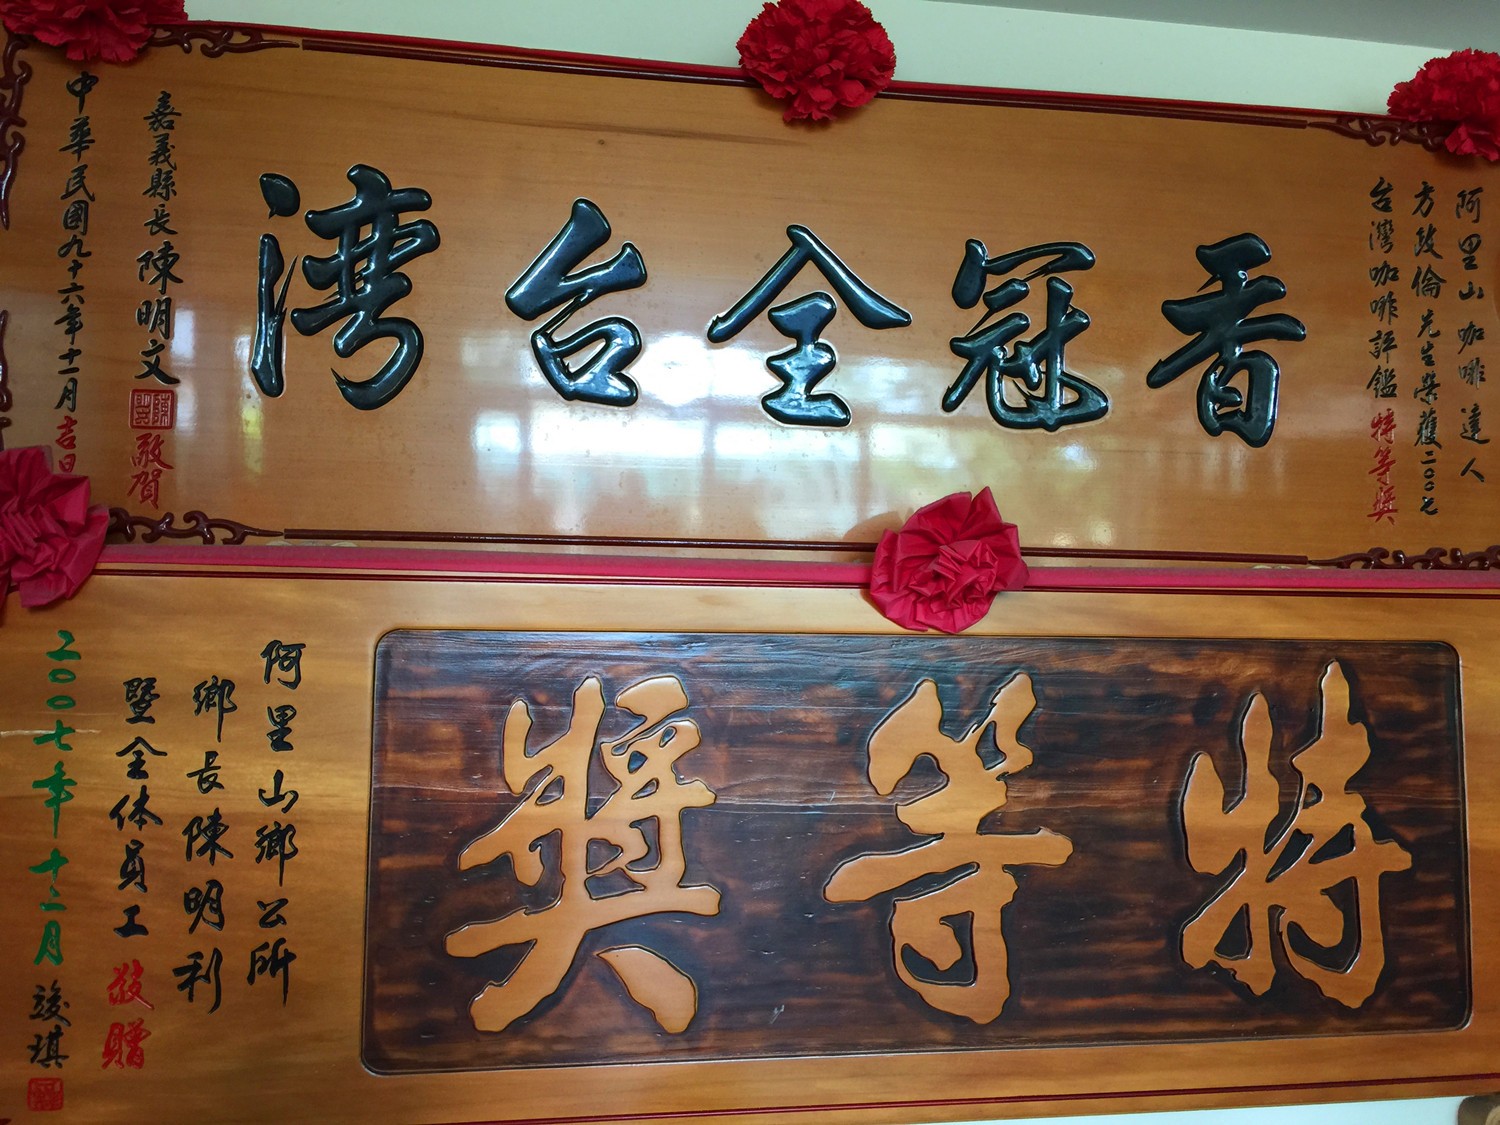 阿里山咖啡達人
方政倫先生榮獲二００七
台灣咖啡評鑑特等獎
香冠全台灣
嘉義縣長陳明文敬賀
中華民國九十六年十二月吉日
特等獎
阿里山鄉公所
鄉長陳明利
暨全体員工敬贈
二００七年十二月竣琪